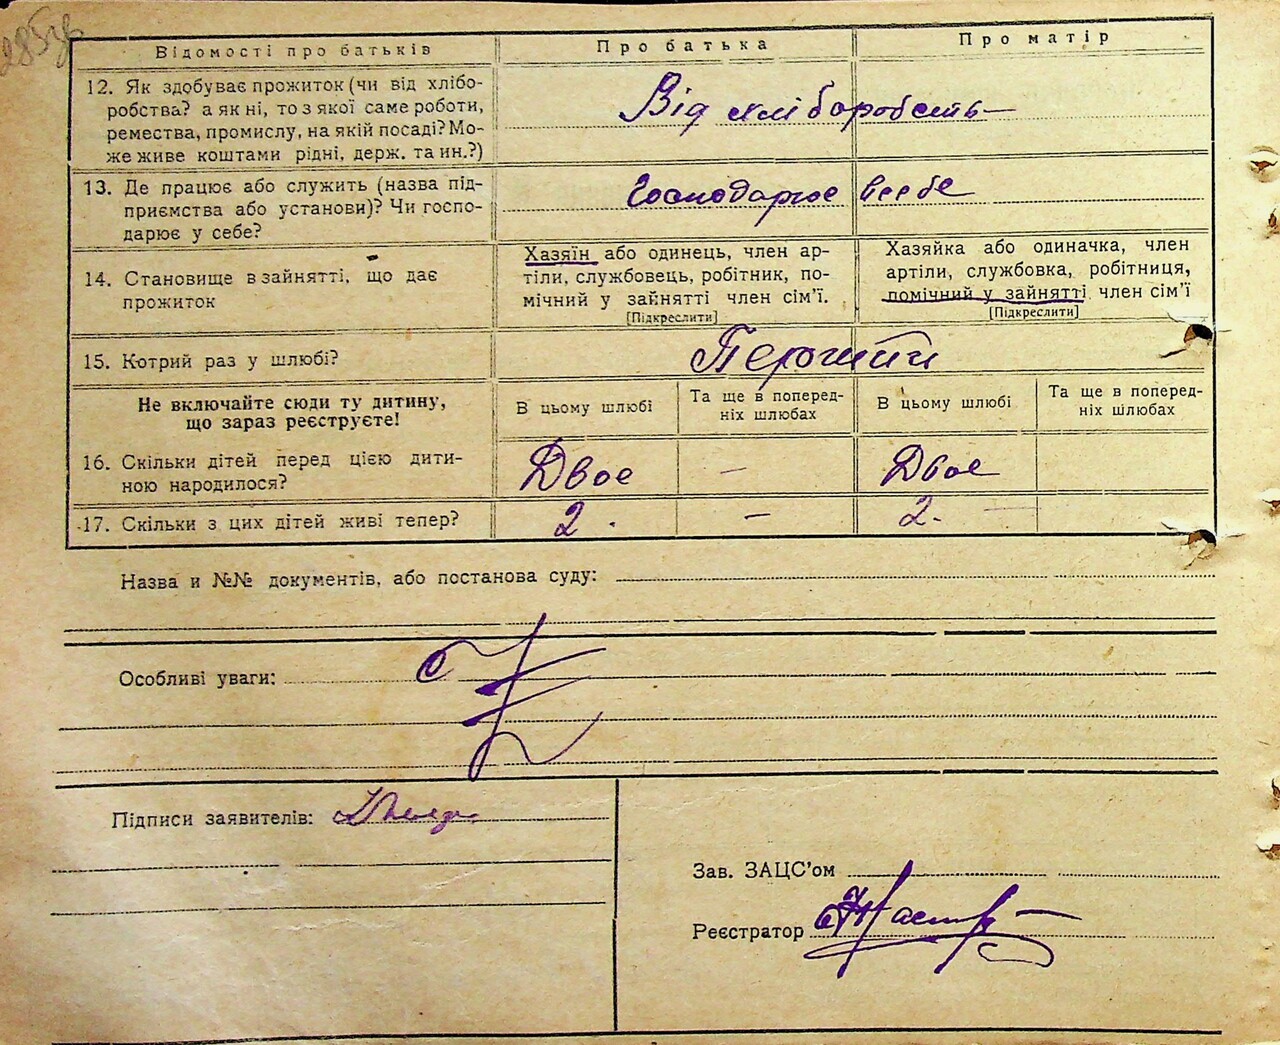 285зв
Відомості про батьків
Про батька
Про матір
12. Як здобуває прожиток (чи від хлібо-
робства? а як ні, то з якої саме роботи,
ремества, промислу, на якій посаді? Мо-
же живе коштами рідні, держ. та ин.?)
Від хліборобств
13. Де працює або служить (назва під-
приємства або установи)? Чи госпо-
дарює у себе?
Господарює в себе
14. Становище в зайнятті, що дає
прожиток
Хазяїн або одинець, член ар-
тіли, службовець, робітник, по-
мічний у зайнятті член сім’ї.
[Підкреслити]
Хазяйка або одиначка, член
артіли, службовка, робітниця,
помічний у зайнятті член сім’ї
[Підкреслити]
15. Котрий раз у шлюбі?
Перший
Не включайте сюди ту дитину,
що зараз реєструєте!
В цьому шлюбі
Та ще в поперед-
ніх шлюбах
В цьому шлюбі
Та ще в поперед-
ніх шлюбах
16. Скільки дітей перед цією дити-
ною народилося?
Двоє — Двоє
17. Скільки з цих дітей живі тепер?
2. — 2. —
Назва и №№ документів, або постанова суду:
Особливі уваги:
Підписи заявителів:
Зав. ЗАЦС’ом
Реєстратор